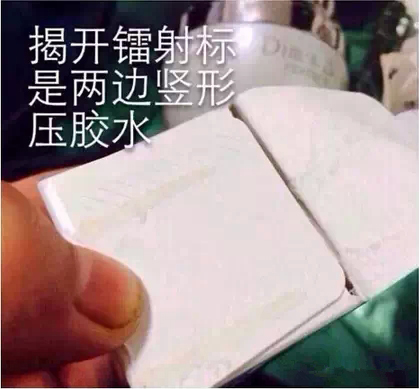 揭开镭射标
是两边竖形
压胶水